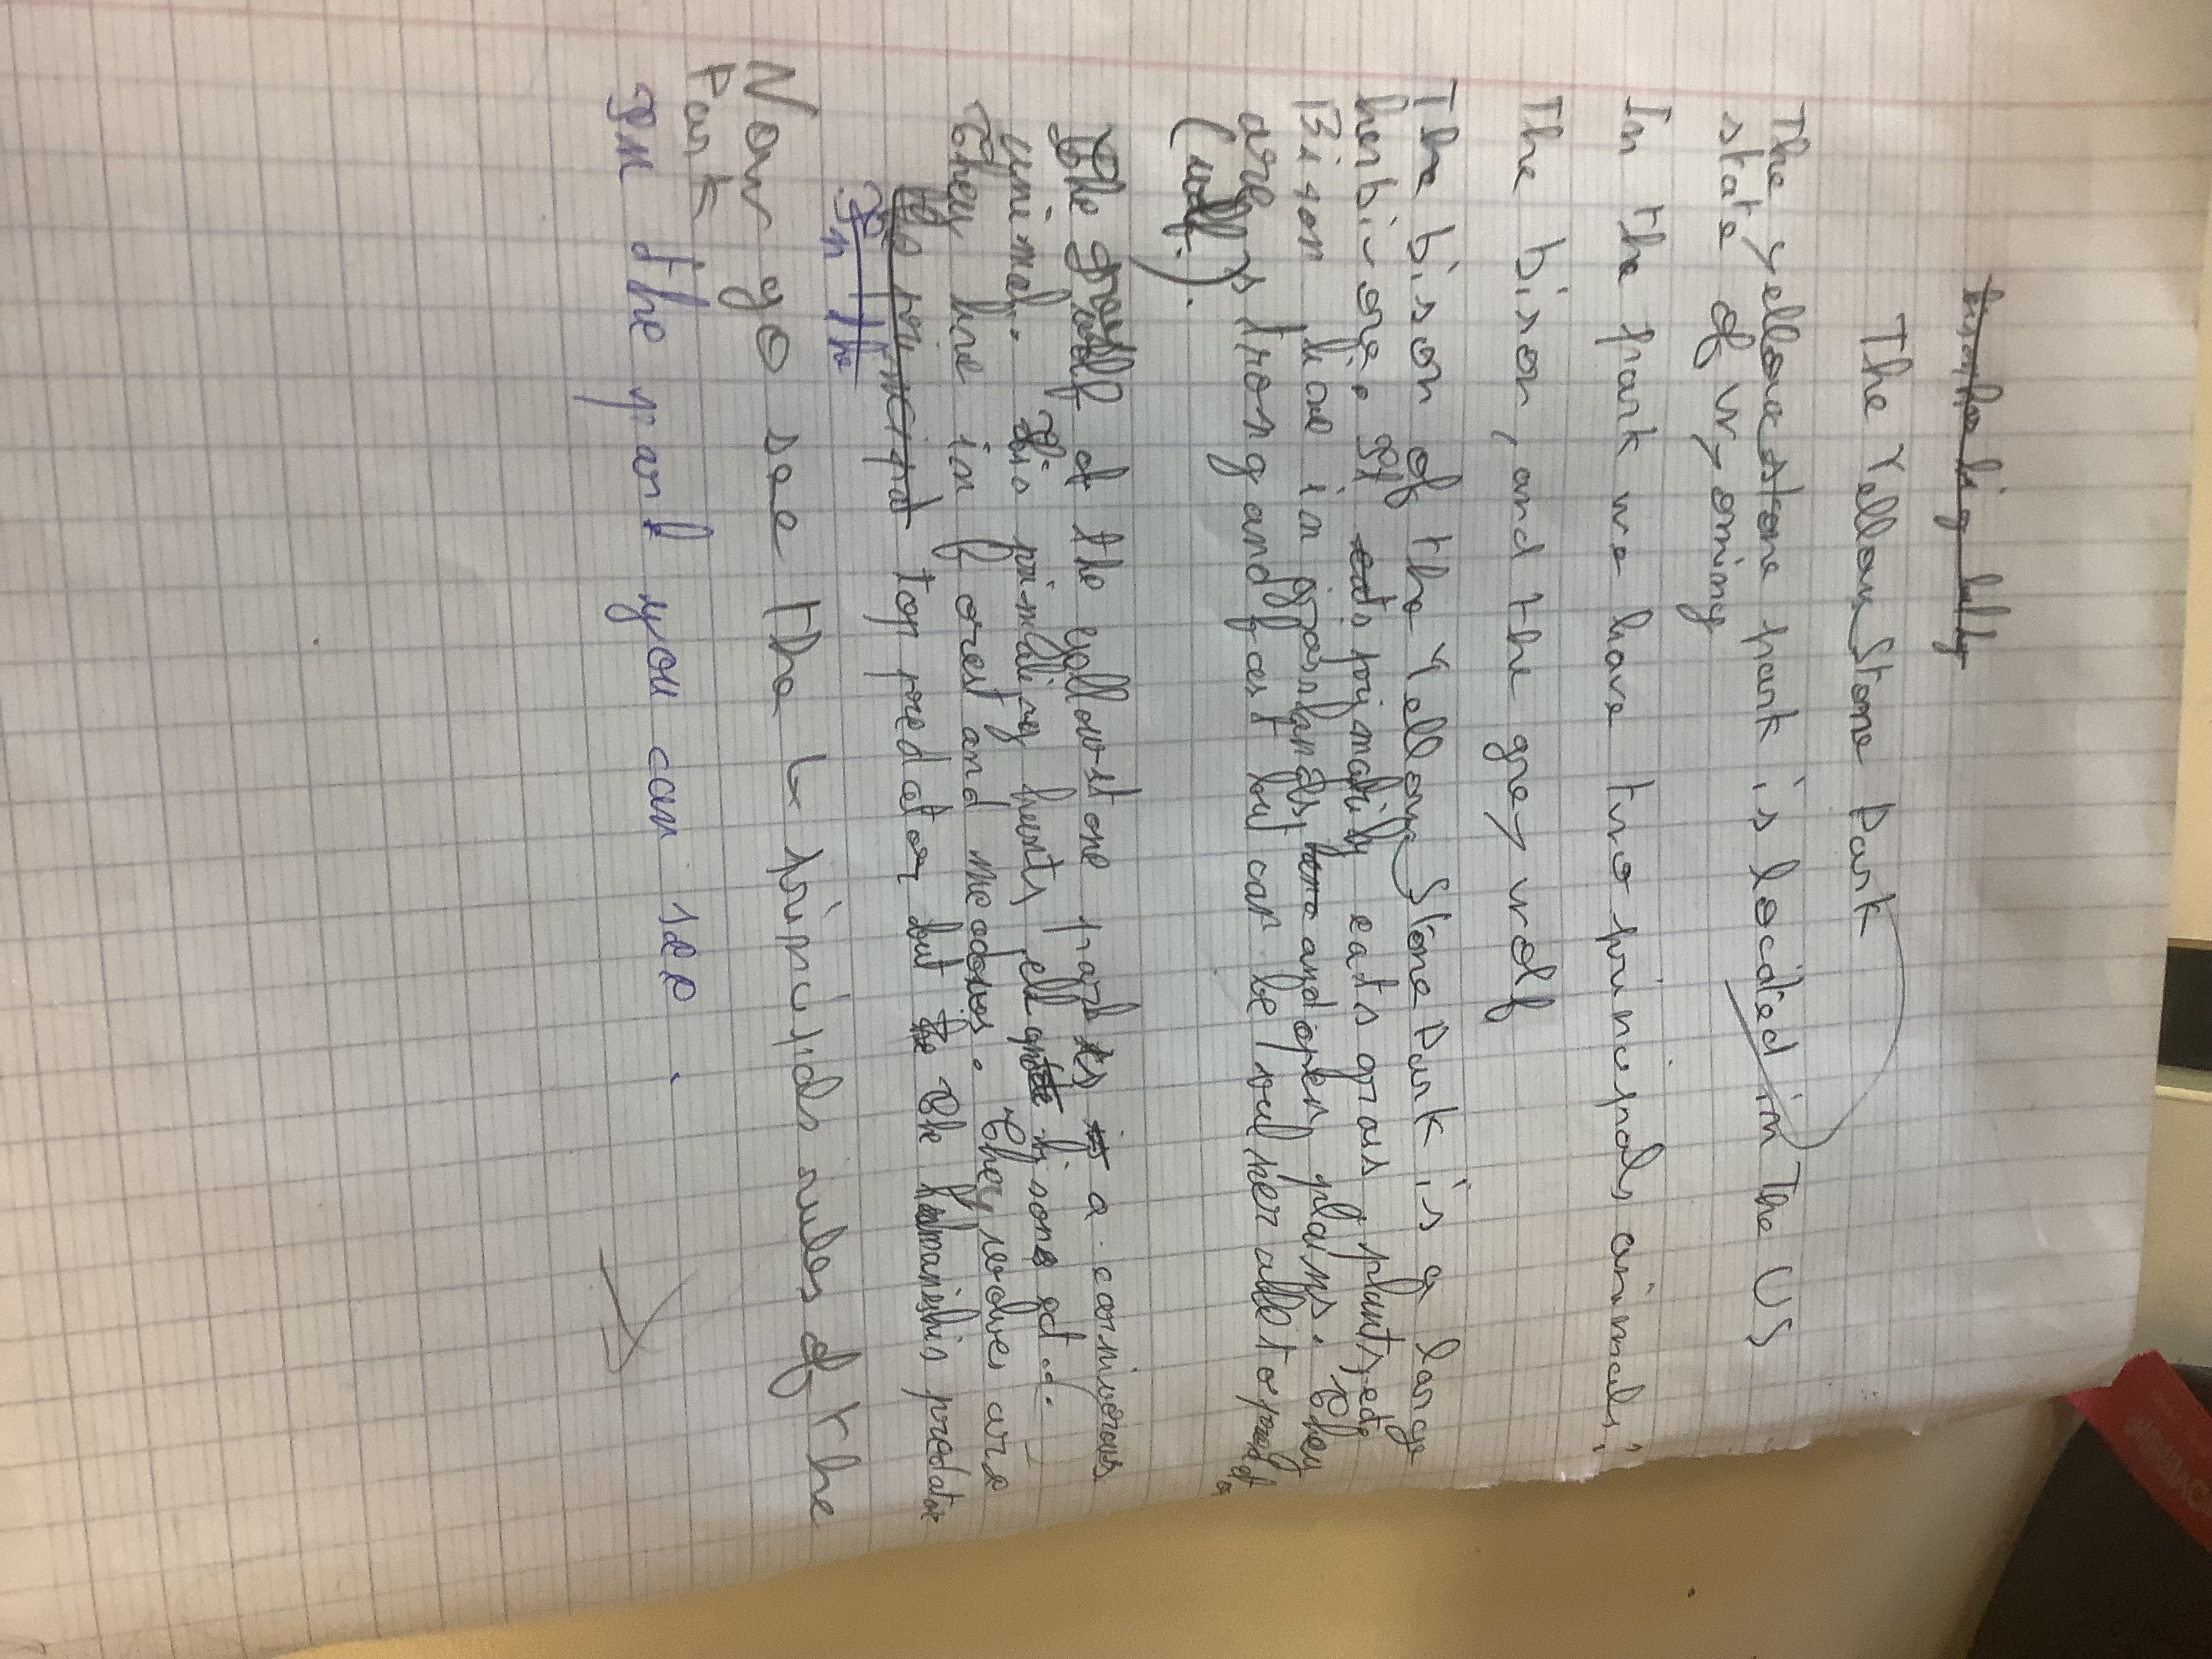 The Yellow Stone Park
The yellow stone park is located in The US
state of wyoming
In the park we have two principals animals:
The bison, and the grey wolf
The bison of the Yellow Stone Park is a large
herbivore. It eats primarily eats grass plants, ect
Bison live in grasslands, and open plains. They
are strong and fast but can be vulnerable to pred of
(wolf).
The grey wolf of the yellowstone park is a carnivorous
animal. His primaliry hunts, elk and bisons ect...
They live in forest and meadows. They wolves are
top predator but the human is his predator
In the
Now go see the 4 principals rules of the
Park
In the park you can see.